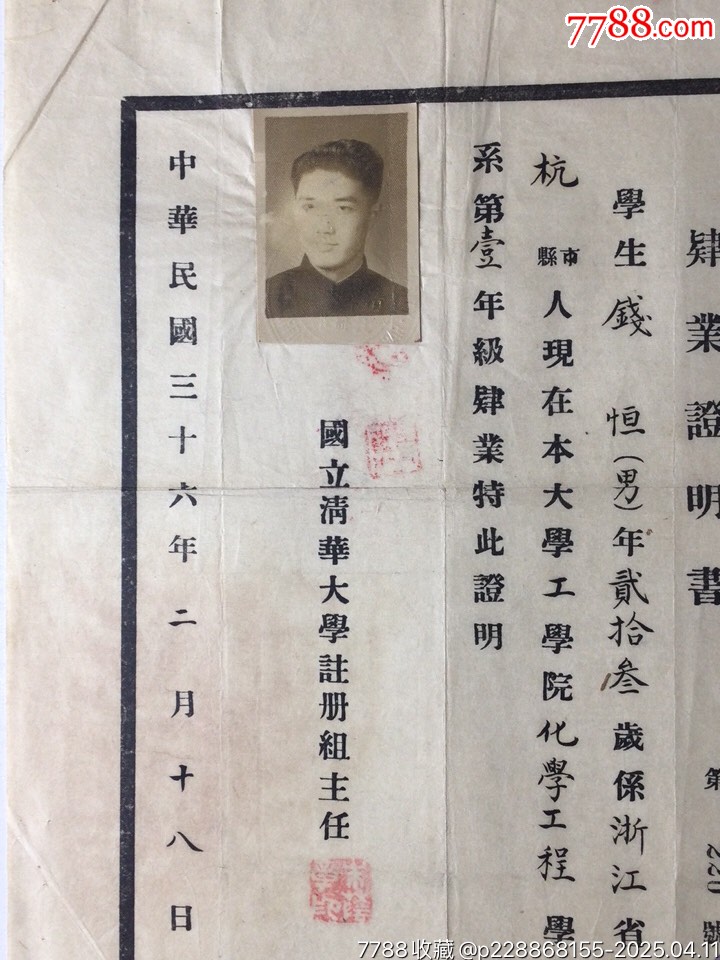 7788.com
肄業證明書
第 220 號
學生錢 恒(男)年貳拾叁歲係浙江省
杭 市縣人現在本大學工學院化學工程學
系第壹年級肄業特此證明
國立清華大學註册組主任
中華民國三十六年二月十八日
7788收藏 @p228868155-2025.04.11